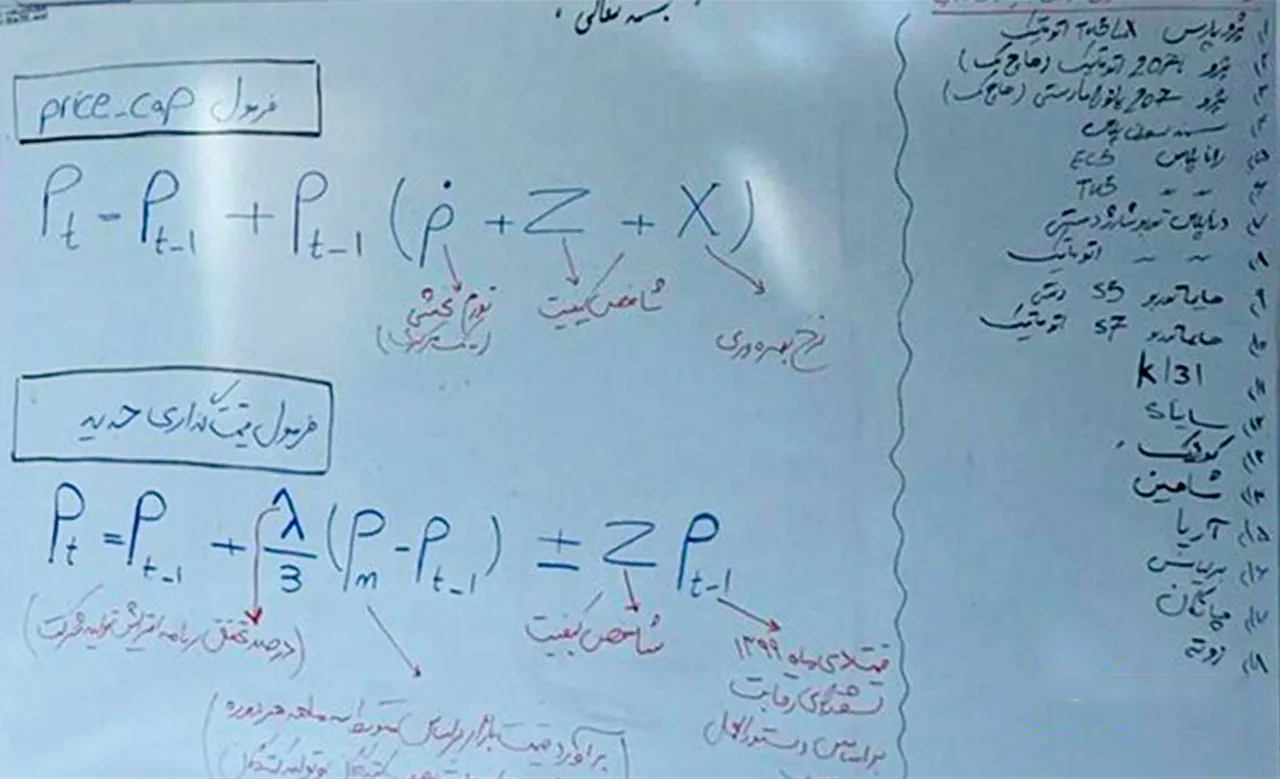 بسمه تعالی
فرمول price_cap
P_t = P_{t-1} + P_{t-1} (ṗ + Z + X)
تورم بخشی
شاخص کیفیت
نرخ بهره وری
فرمول قیمت گذاری جدید
P_t = P_{t-1} + λ/3 (P_m - P_{t-1}) ± Z P_{t-1}
(درصد تحقق برنامه افزایش تولید شرکت)
شاخص کیفیت
قیمتهای دی ماه ۱۳۹۹
شورای رقابت
براساس دستورالعمل
برآورد قیمت بازار براساس متوسط سه ماهه هر دوره
۱. پژو پارس TU5 اتوماتیک
۲. پژو 206 اتوماتیک (هاچ بک)
۳. پژو 207 پانوراما دستی (هاچ بک)
۴. سمند سورن پلاس
۵. رانا پلاس EC5
۶. " " TU5
۷. دنا پلاس توربوشارژ دستی
۸. " " اتوماتیک
۹. هایما توربو S5
۱۰. هایما توربو S7 اتوماتیک
۱۱. K131
۱۲. ساینا S
۱۳. کوئیک
۱۴. شاهین
۱۵. آریا
۱۶. برلیانس
۱۷. چانگان
۱۸. زوتی